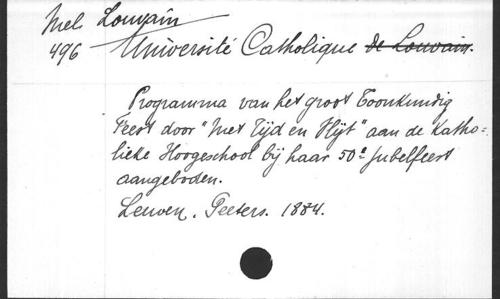 Mel Louvain
496 Université Catholique de Louvain.
Programma van het groot Toonkundig
Feest door "Met Tijd en Vlijt" aan de Katho-
lieke Hoogeschool bij haar 50e Jubelfeest
aangeboden.
Leuven, Peeters. 1884.